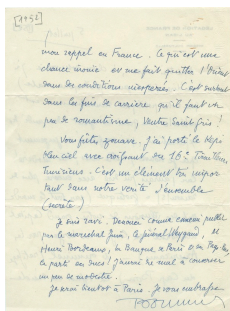 [1952]
mon rappel en France, ce qui est une
chance inouïe et me fait quitter l'Orient
dans des conditions inespérées. C'est surtout
dans les fins de carrière qu'il faut un
peu de romantisme, Ventre Saint-gris !
Vous fûtes zouave. J'ai porté le képi
bleu ciel avec croissant des 16e Tirailleurs
Tunisiens. C'est un élément important
dans notre vérité d'ensemble
(secrète)
Je suis ravi. Désormais comme
par le maréchal Juin, le général Weygand, et
Henri Bordeaux, un banquet à Paris
J'aurai du mal à conserver
un peu de modestie.
Je serai bientôt à Paris. Je vous embrasse